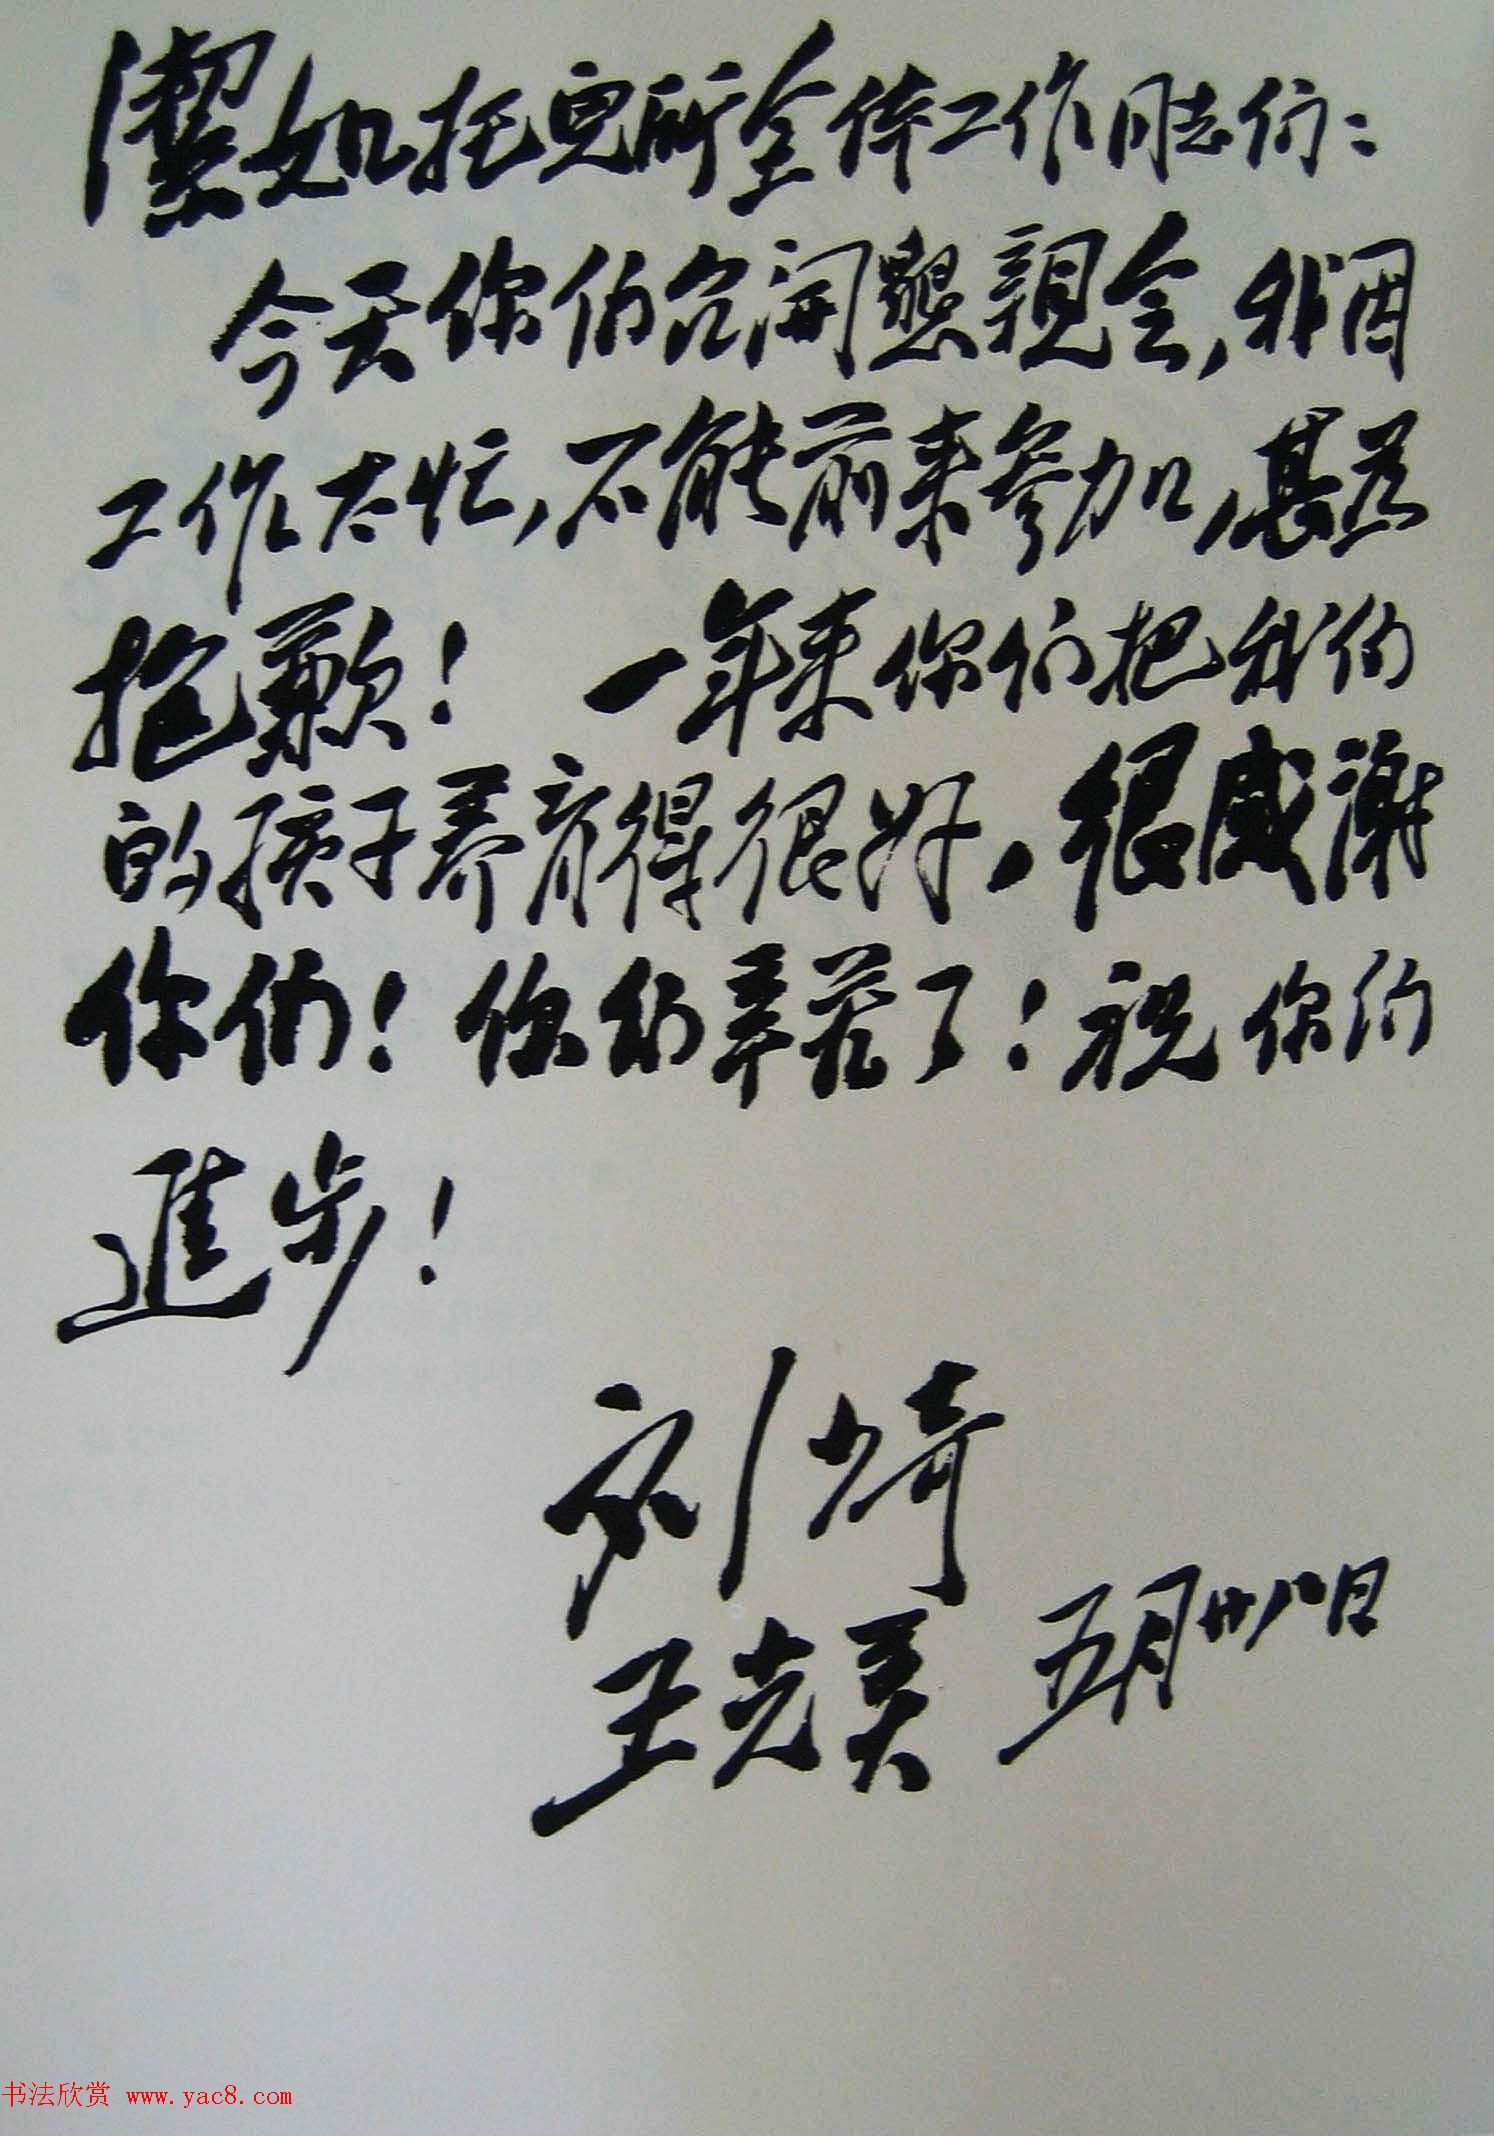 潔如托児所全体工作同志们：
今天你们召開懇親会，我因
工作太忙，不能前来参加，甚为
抱歉！ 一年来你们把我们
的孩子养育得很好，很感谢
你们！你们辛苦了！祝你们
進步！
刘少奇
王光美 五月廿八日
书法欣赏 www.yac8.com